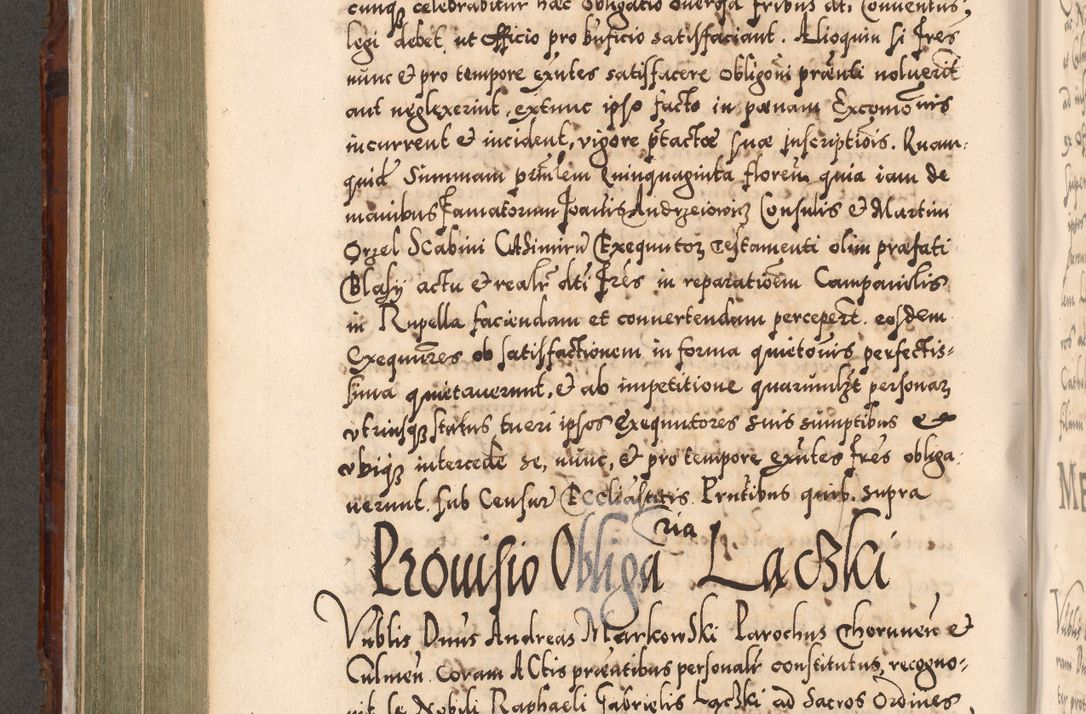 cunqʒ celebrabitur haec obligatio oversa fribus dti. Conventus,
legi debet, ut Officio pro buficio satisfaciant. Alioquin si fres
nunc & pro tempore exntes satisfacere obligoni prænti noluerit
aut neglexerint, extunc ipso facto in pœnam Excomonis
incurrent & incident, vigore ptactæ suæ inscriptiois. Quam-
quid Summam prnlem Quinquaginta floren quia iam de
manibus Famatorum Joanis Andrzeiowicz Consulis & Martini
Orzel Scabini Casimiru Exequntor Testamenti olim præfati
Blasÿ actu & realr dti Fres in reparationem Campanilis
in Rupella faciendam et convertendam percepert. eosdem
Exequntres ob satisfactionem in forma quietonis perfectis-
sima quietaverunt, & ab impetitione quarumlbt personar
utriusqʒ status tueri ipsos Exequutores suis sumptibus &
ubiqʒ intercede se, nunc, & pro tempore exntes fres obliga-
verunt. sub Censur Eccliasticis. Prntibus quib. supra
Provisio Obligaria Laczki
Vnblis Dnus Andreas Markowski Parochus Thorunen &
Culmen. Coram Actis præntibus personalr constitutus, recogno-
vit se Nobili Raphaeli Gabrielis Laczki ad Sacros Ordines